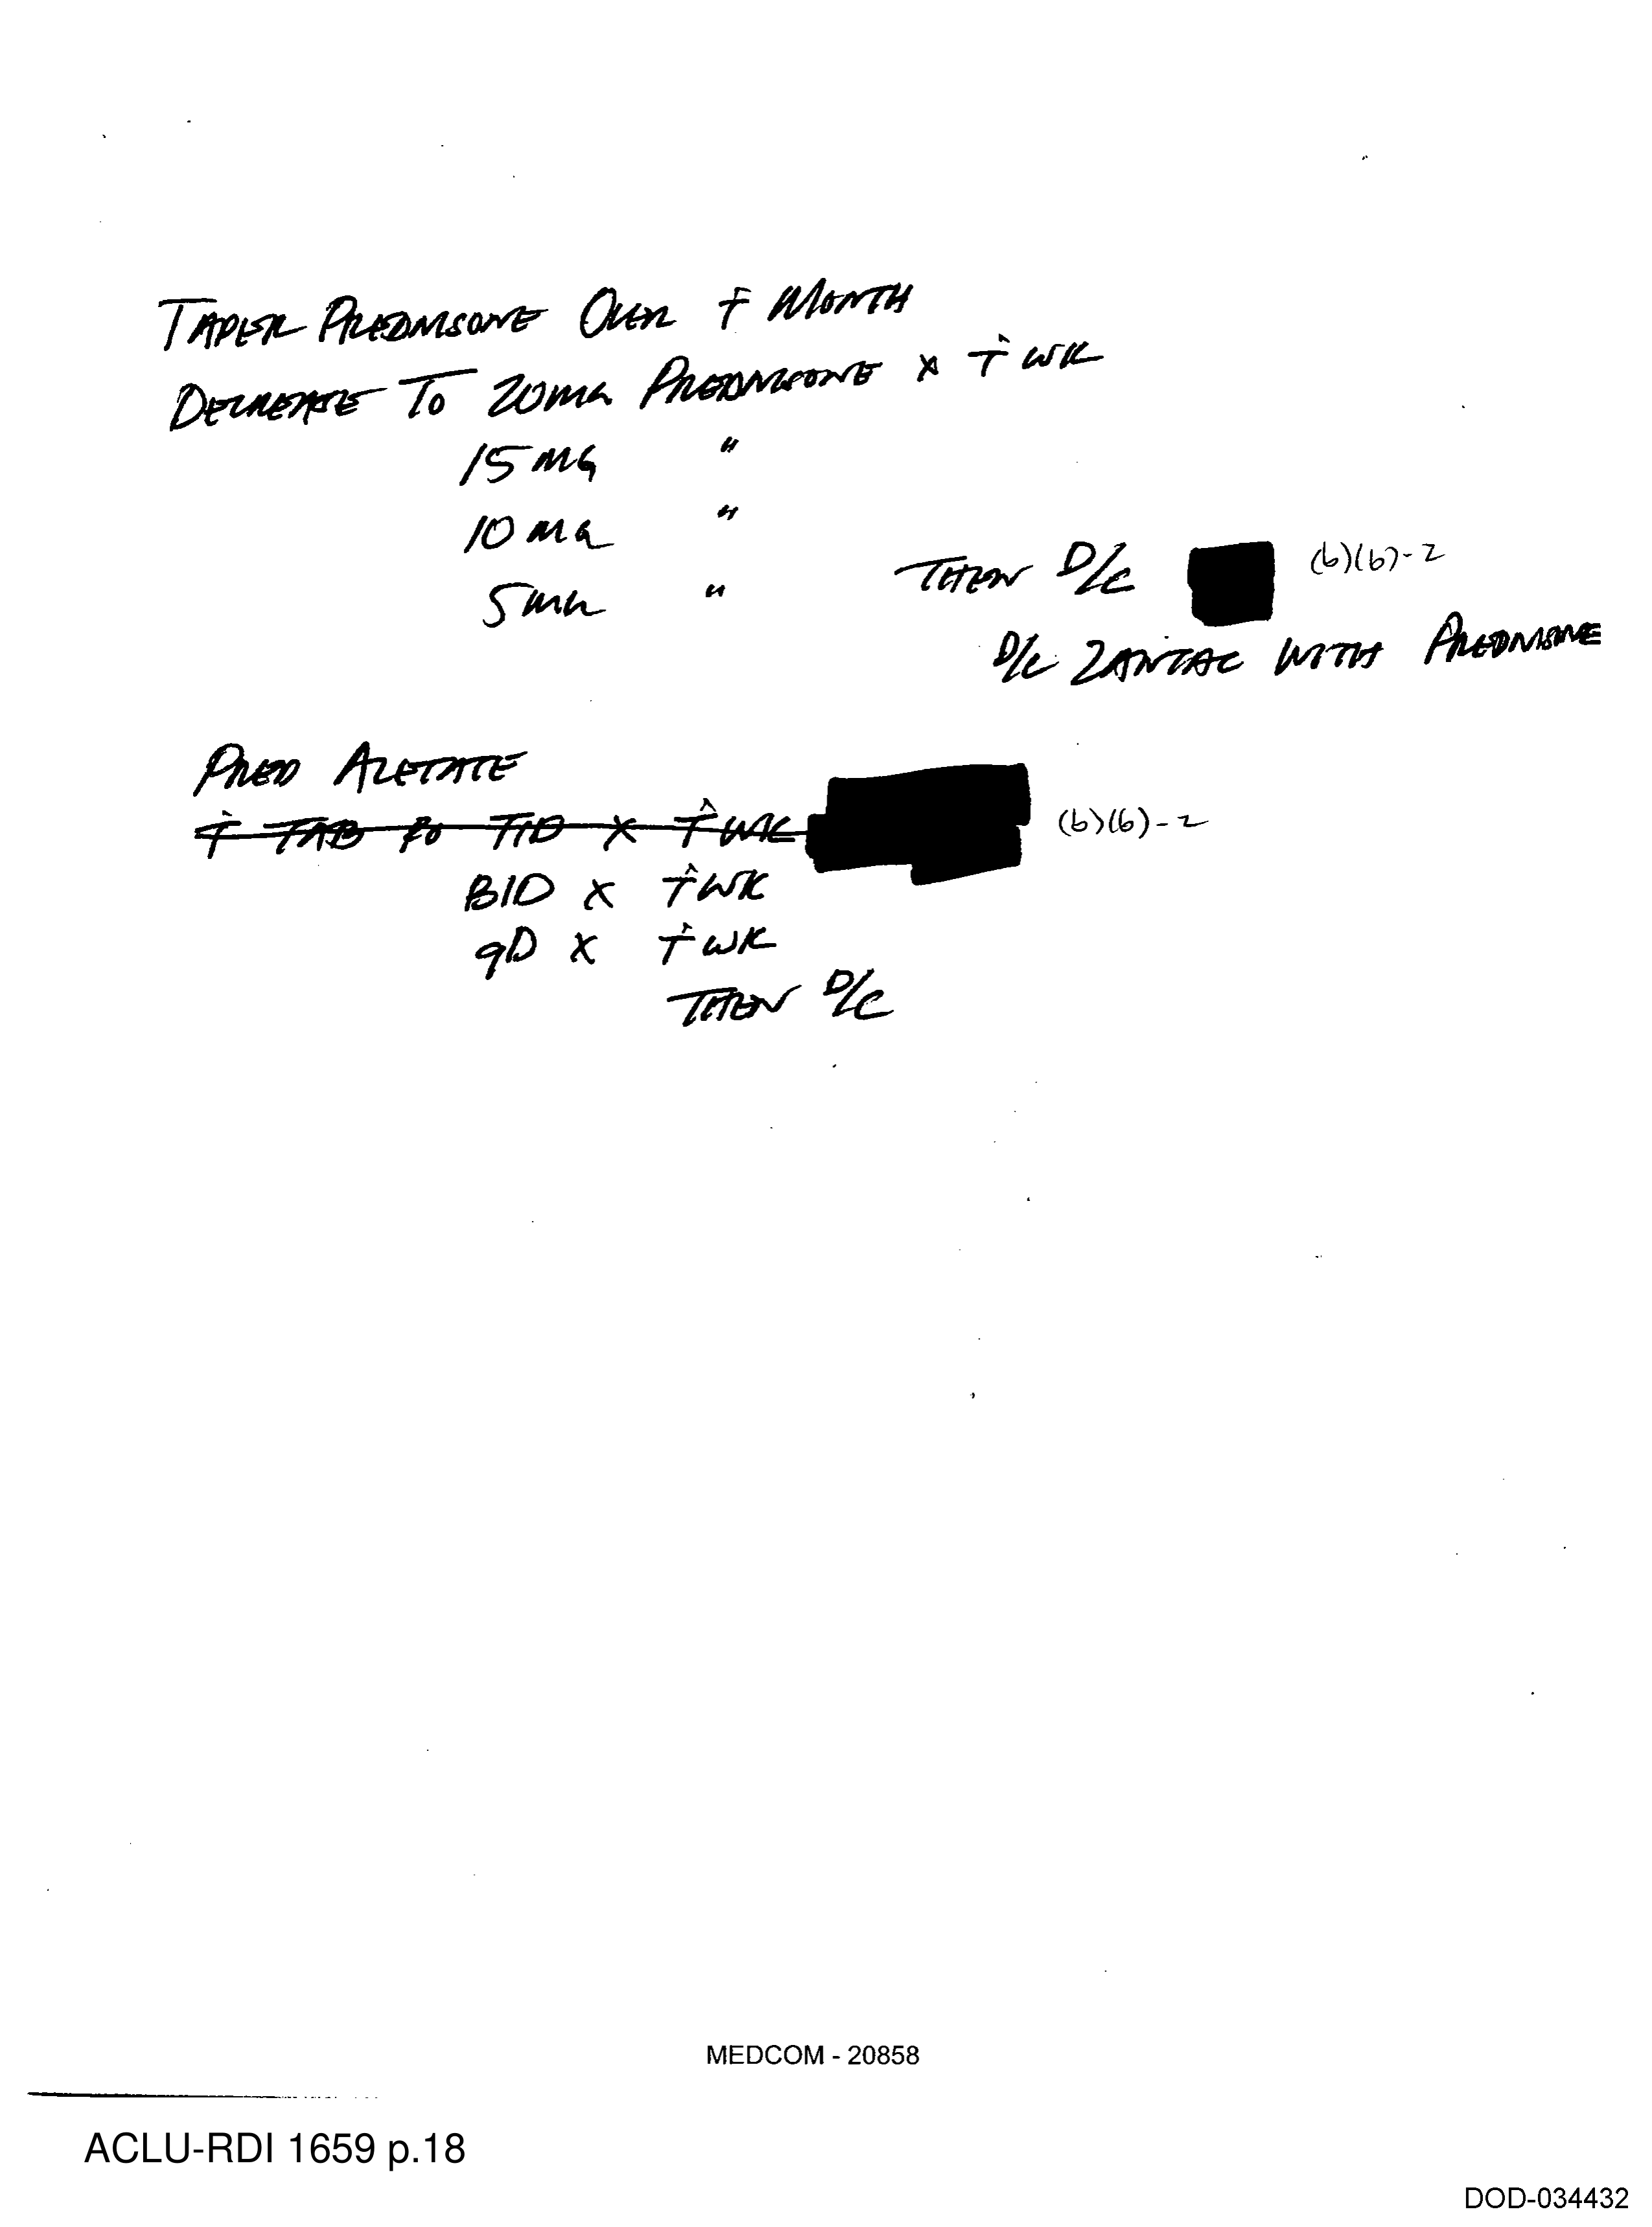 TAPER PREDNISONE OVER i MONTH
DECREASE TO 20MG PREDNISONE X i WK
15MG "
10MG "
5MG " THEN D/C (b)(6)-2
D/C ZANTAC WITH PREDNISONE
PRED ACETATE
i TAB PO TID X i WK (b)(6)-2
BID X i WK
qD X i WK
THEN D/C
MEDCOM - 20858
ACLU-RDI 1659 p.18
DOD-034432